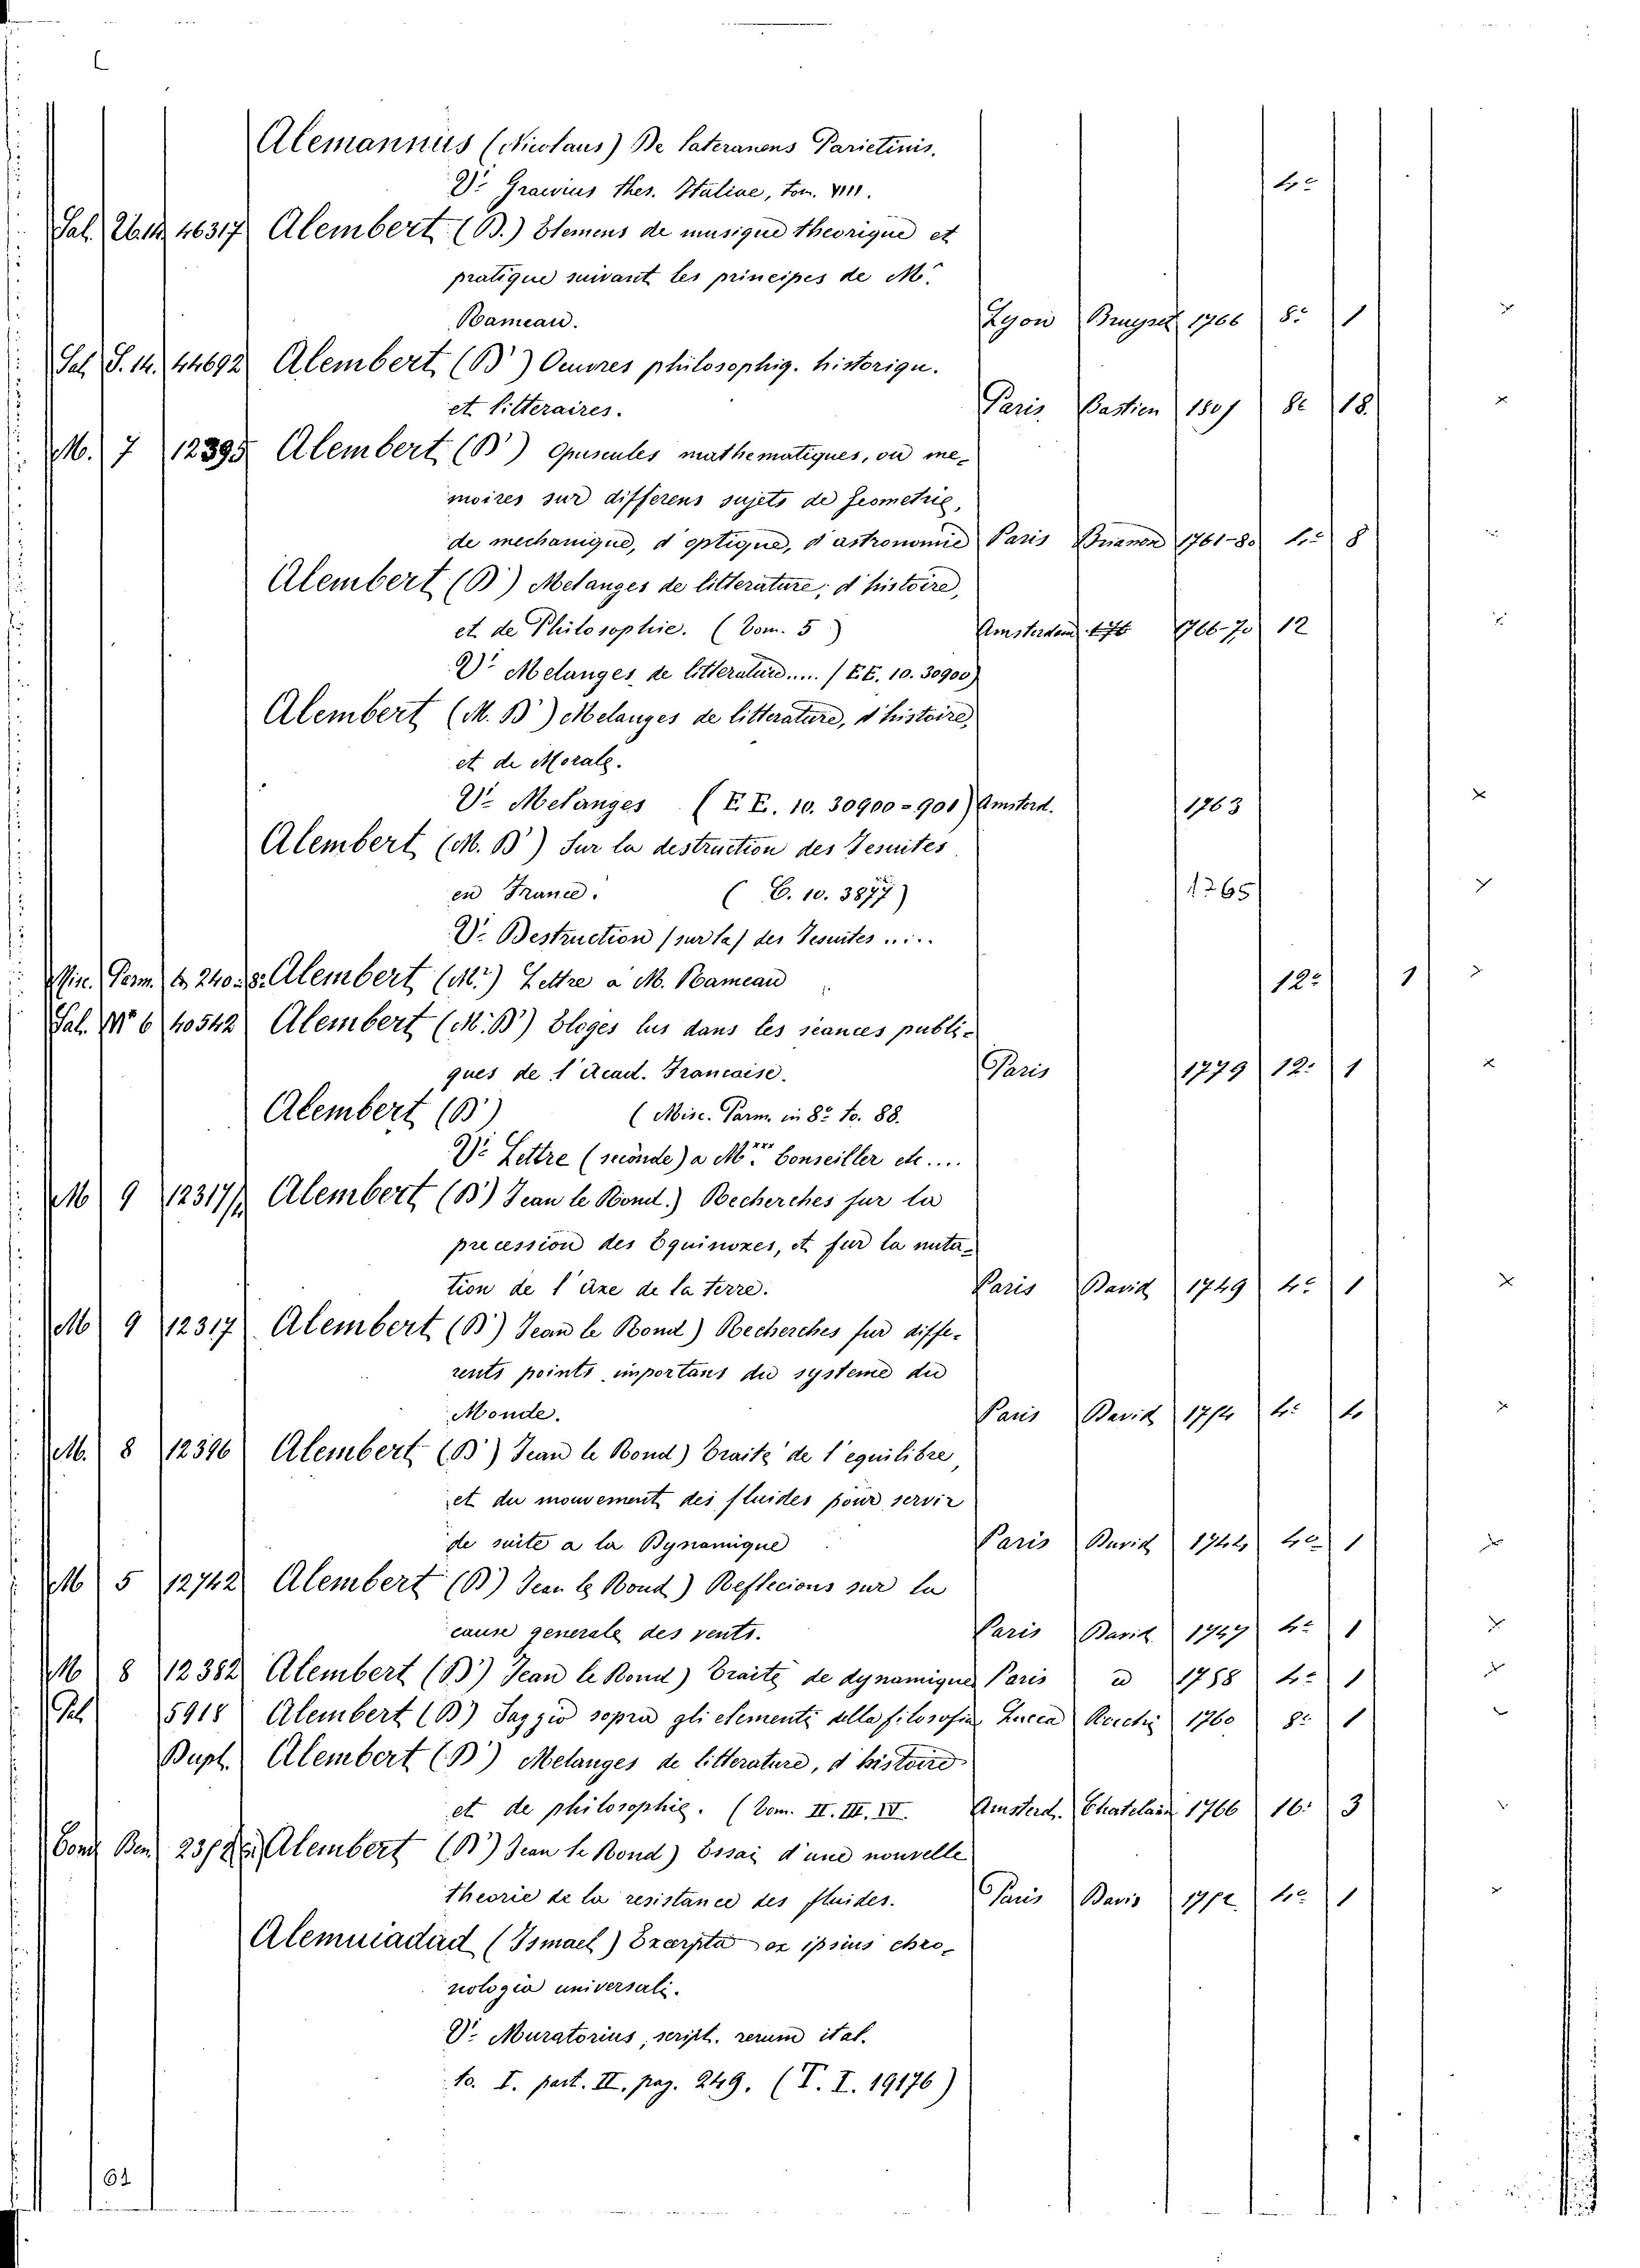 Alemannus (Nicolaus) De Lateranens Parietinis.
V. Graevius thes. Italiae, tom. VIII. 4°
Sal. 46317 Alembert (D.) Elemens de musique theorique et
pratique suivant les principes de Mr.
Rameau. Lyon Bruyset 1766 8° 1
Sal. S. 14. 44692 Alembert (D') Oeuvres philosophiq. historiqu.
et litteraires. Paris Bastien 1805 8° 18.
M. 7 12395 Alembert (D') Opuscules mathematiques, ou me-
moires sur differens sujets de Geometrie,
de mechanique, d'optique, d'astronomie Paris Brianon 1761-80 4° 8
Alembert (D') Melanges de litterature, d'histoire,
et de Philosophie. (Tom. 5) Amsterdam 1766-70 12
V. Melanges de litterature..... (EE. 10. 30900)
Alembert (M. D') Melanges de litterature, d'histoire,
et de Morale.
V. Melanges (EE. 10. 30900=901) Amsterd. 1763
Alembert (M. D') Sur la destruction des Jesuites
en France. (C. 10. 3877) 1765
V. Destruction (sur la) des Jesuites ....
Misc. Parm. 4 240. 8° Alembert (Mr.) Lettre a M. Rameau 12° 1
Sal. N° 6 40542 Alembert (M. D') Eloges lus dans les séances publi-
ques de l'Acad. Francaise. Paris 1779 12° 1
Alembert (D') (Misc. Parm. in 8° to. 88.
V. Lettre (seconde) a Mr. xxx Conseiller etc....
M 9 12317/2 Alembert (D') Jean le Rond.) Recherches sur la
precession des Equinoxes, et sur la nuta-
tion de l'axe de la terre. Paris David 1749 4° 1
M 9 12317 Alembert (D') Jean le Rond) Recherches sur diffe-
rents points importans du systeme du
Monde. Paris David 1754 4°
M. 8 12396 Alembert (D') Jean le Rond) Traité de l'equilibre,
et du mouvement des fluides pour servir
de suite a la Dynamique Paris David 1744 4° 1
M 5 12742 Alembert (D') Jean le Rond) Reflecions sur la
cause generale des vents. Paris David 1747 4° 1
M 8 12382 Alembert (D') Jean le Rond) Traité de dynamique Paris 1758 4° 1
Sal 5918 Alembert (D') Saggio sopra gli elementi della filosofia Lucca 1760 8° 1
Dupl. Alembert (D') Melanges de litterature, d'histoire
et de philosophie. (Tom. II. III. IV. Amsterd. Chatelain 1766 16° 3
Cond Ben Alembert (D') Jean le Rond) Essai d'une nouvelle
theorie de la resistance des fluides. Paris David 1752 4° 1
Alemuiadad (Ismael) Excerpta ex ipsius chro-
nologia universali.
V. Muratorius, script. rerum ital.
to. I. part. II. pag. 249. (T. I. 19176)
61